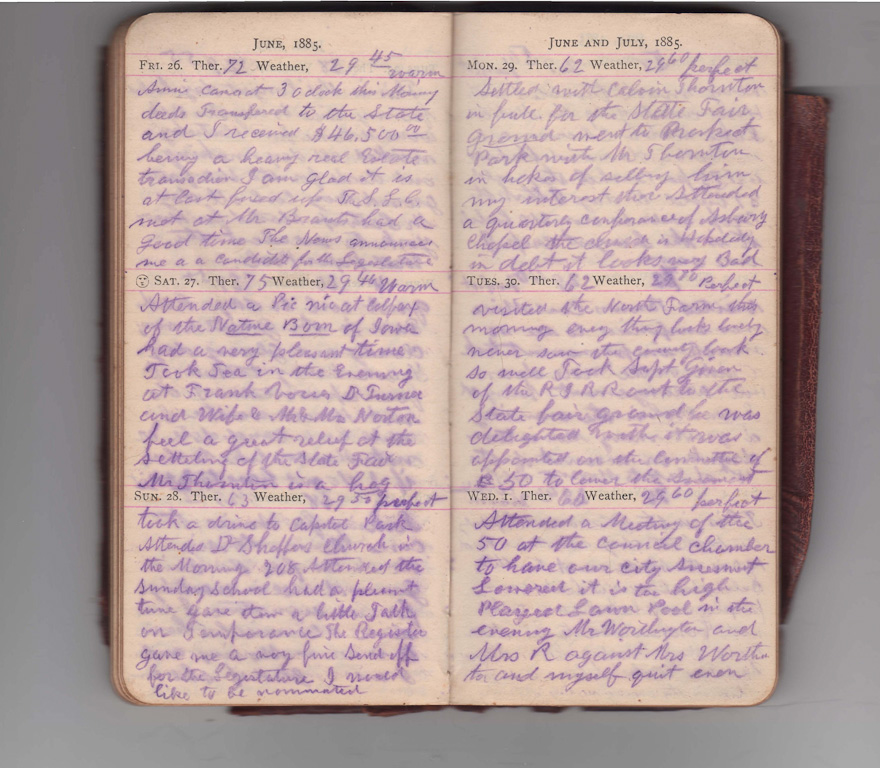 JUNE, 1885.
FRI. 26. Ther. 72 Weather, 29 45 warm
Annie came at 3 oclock this Morning
deeds Transfered to the State
and I received $46,500 00
being a heavy real Estate
transaction I am Glad it is
at last fixed up The S.S.C.
met at Mr had a
Good time The News announces
me a a candidate for the Legislature
SAT. 27. Ther. 75 Weather, 29 40 Warm
Attended a Pic nic at
of the Native Born of Iowa
had a very pleasant time
Took Tea in the Evening
at Frank Dr Turner
and Wife & Mr & Mrs Norton
feel a great relief at the
settleing of the State Fair
Mr Thornton is a hog
SUN. 28. Ther. 63 Weather, 29 50 perfect
took a drive to Capitol Park
Attended Dr church in
the Morning 208 Attended the
Sunday School had a plesant
time gave them a little Talk
on Temperance The Register
gave me a very fine Send off
for the Legislature I would
like to be nominated
JUNE AND JULY, 1885.
MON. 29. Ther. 62 Weather, 29 60 perfect
Settled with Calvin Thornton
in full for the State Fair
ground went to Prospect
Park with Mr Thornton
in hopes of selling him
my interest there Attended
a quarterly conferance of Asbury
Chapel the church is Hopelesly
in debt it looks very Bad
TUES. 30. Ther. 62 Weather, 29 70 Perfect
visited the North Farm this
morning every thing looks lovely
never saw the country look
so well Took Supt Given
of the R I R R out to the
State fair ground he was
delighted with it was
appointed on the Committee of
50 to lower the
WED. 1. Ther. 60 Weather, 29 60 perfect
Attended a Meeting of the
50 at the council chamber
to have our city
Lowered it is too high
Played Lawn Pool in the
evening Mr Worthington and
Mrs R against Mrs Worthing
ton and myself quit even